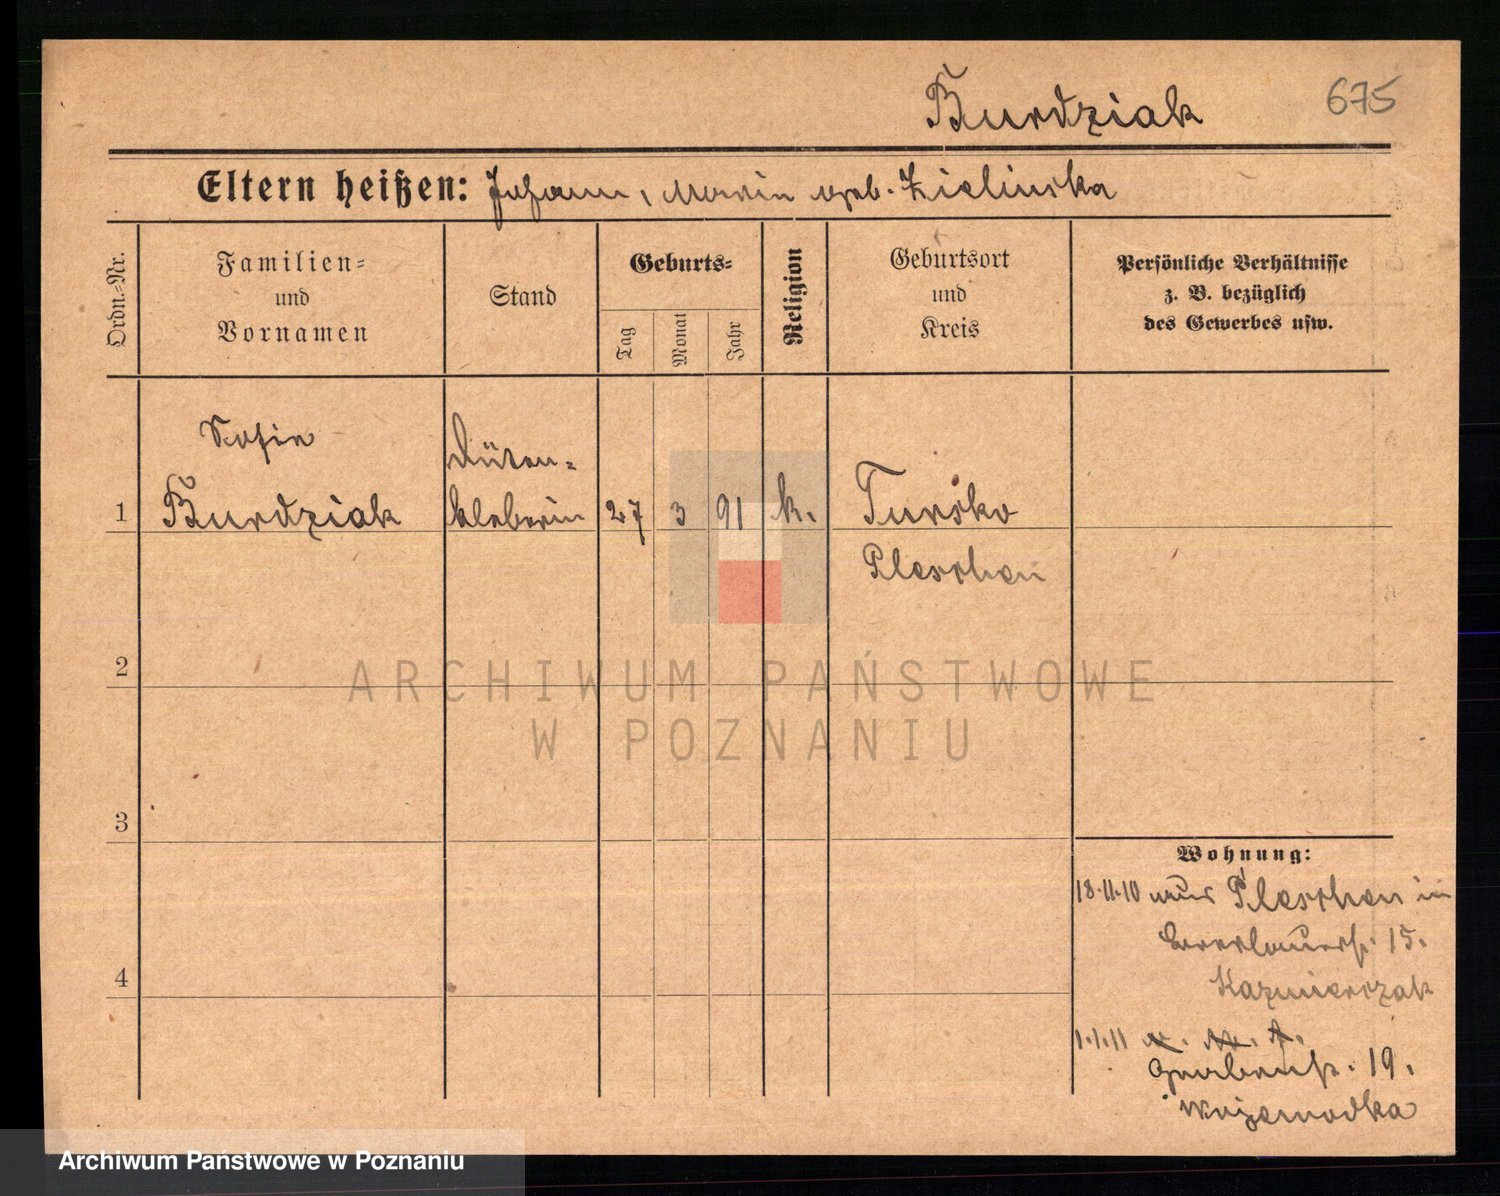 Burdziak
675
Eltern heißen: Johann, Maria geb. Zielinska
Ordn.-Nr.
Familien=
und
Vornamen
Stand
Geburts=
Tag
Monat
Jahr
Religion
Geburtsort
und
Kreis
Persönliche Verhältnisse
z. B. bezüglich
des Gewerbes usw.
Sofie
Burdziak
Düten=
kleberin
1
27
3
91
k.
Tursko
Pleschen
2
3
4
Wohnung:
18.11.10 aus Pleschen in
15.
Kazmierczak
1.1.11
Grabenstr. 19.
ARCHIWUM PAŃSTWOWE
W POZNANIU
Archiwum Państwowe w Poznaniu